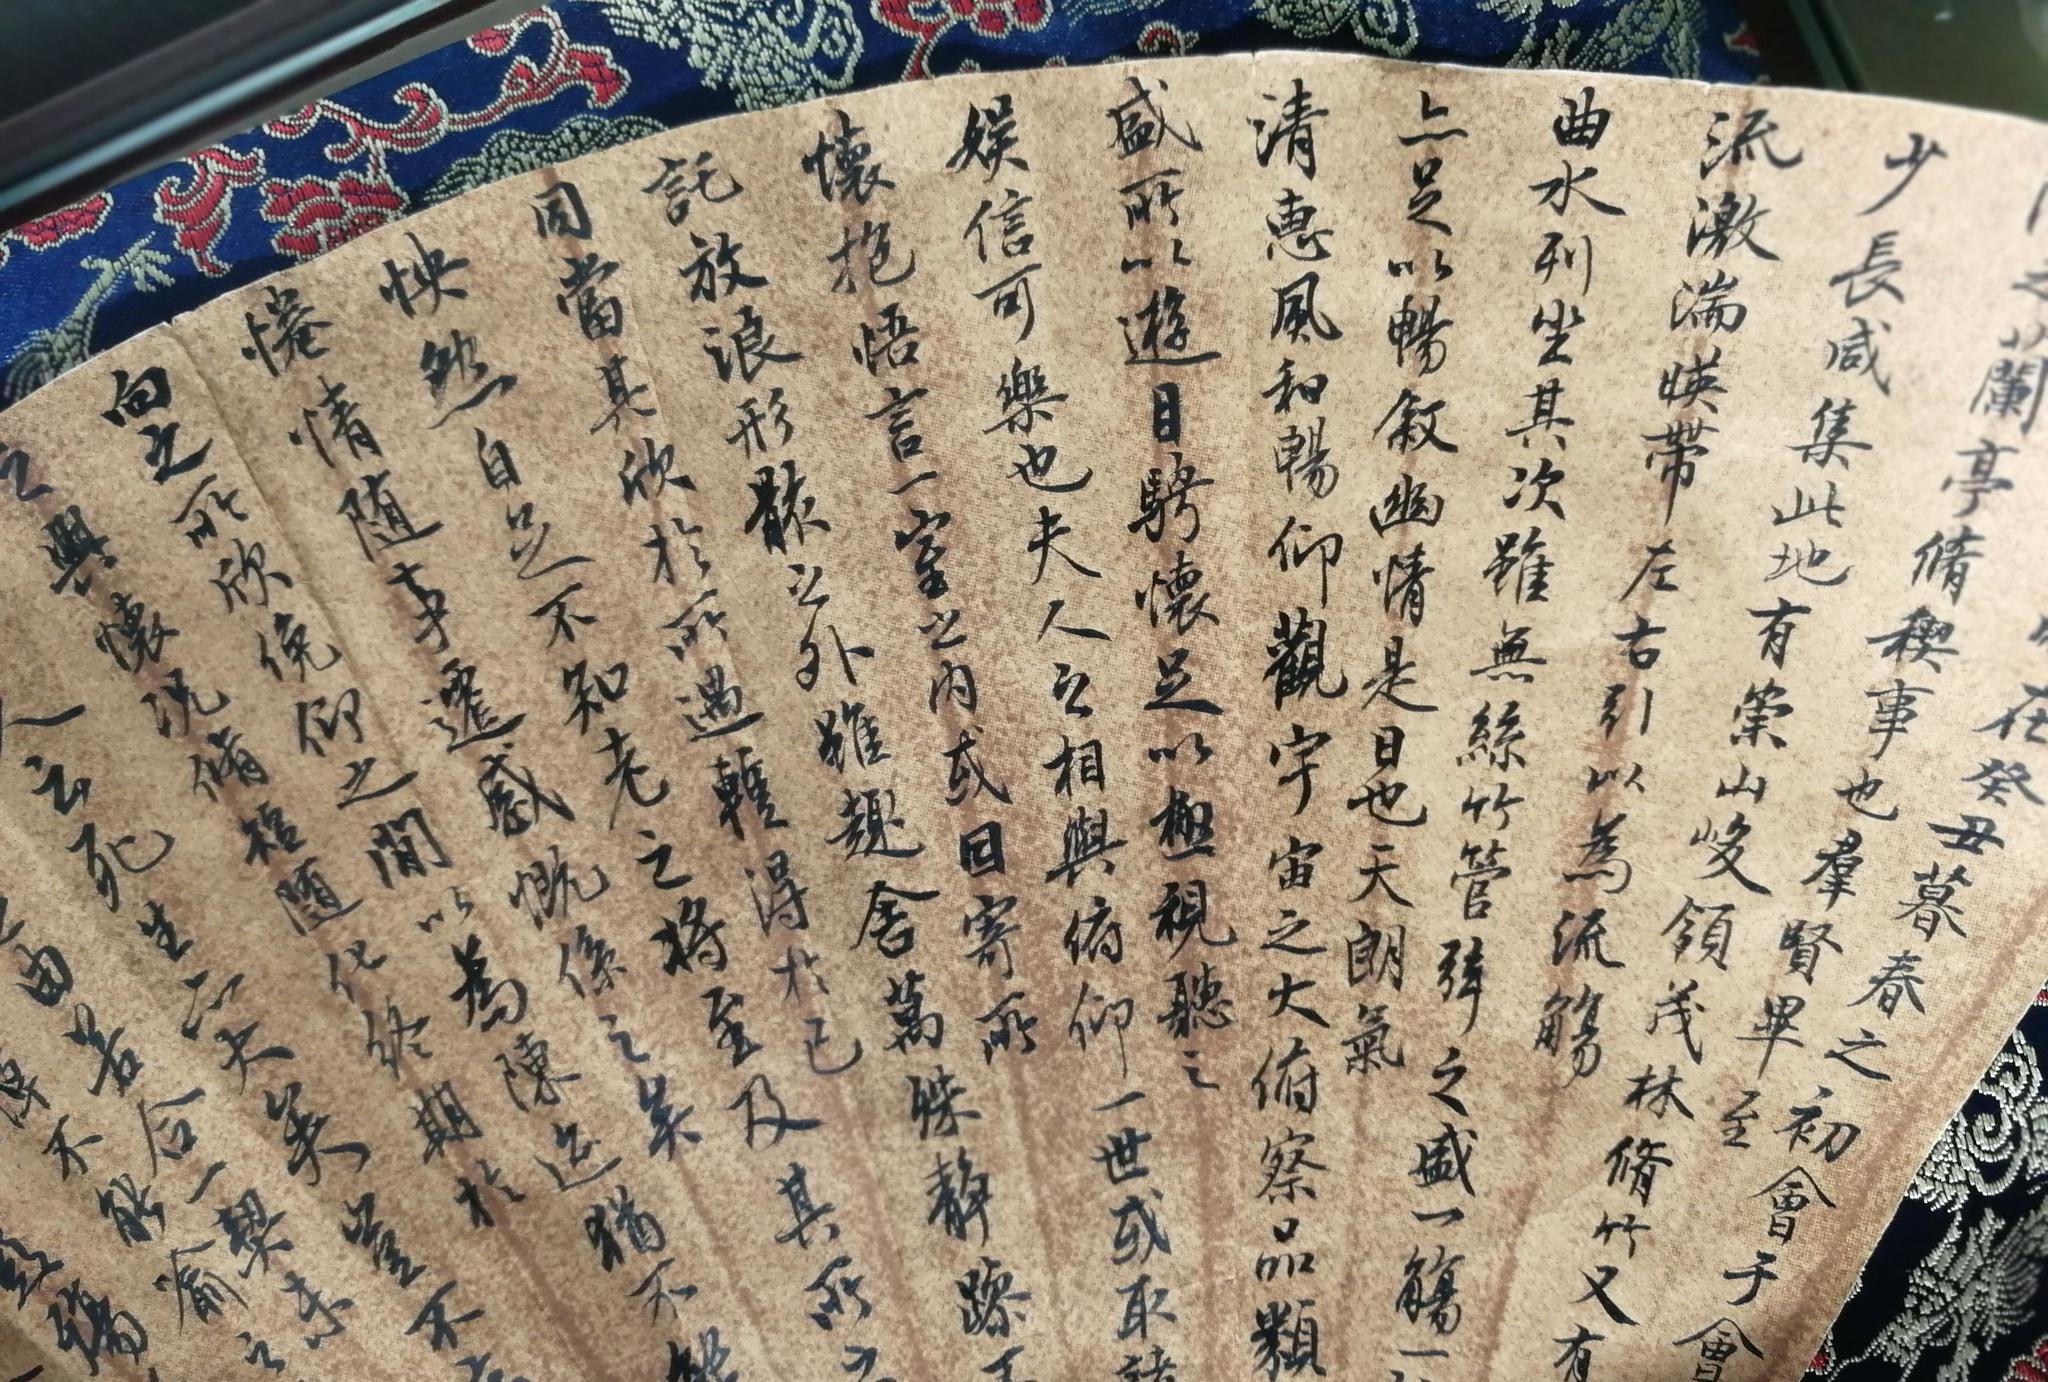 在癸丑暮春之初會于會
之蘭亭脩稧事也羣賢畢至
少長咸集此地有崇山峻領茂林脩竹又有
流激湍暎帶左右引以為流觴
曲水列坐其次雖無絲竹管弦之盛一觴一
亦足以暢敘幽情是日也天朗氣
清惠風和暢仰觀宇宙之大俯察品類
盛所以遊目騁懷足以極視聽之
娛信可樂也夫人之相與俯仰一世或取諸
懷抱悟言一室之內或因寄所
託放浪形骸之外雖趣舍萬殊靜躁不
同當其欣於所遇輒得於己
怏然自足不知老之將至及其所之
惓情隨事遷感慨係之矣
向之所欣俛仰之間以為陳迹猶不能
之興懷況脩短隨化終期於
人云死生亦大矣豈不
由若合一契未
不能喻之
彭殤